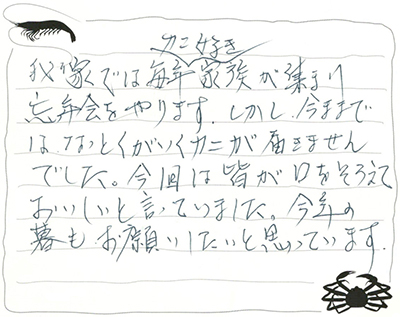 カニ好き
我家では毎年家族が集まり
忘年会をやります。しかし、今まで
は、なっとくがいくカニが届きません
でした。今回は皆が口をそろえて
おいしいと言っていました。今年の
暮も、お願いしたいと思っています。